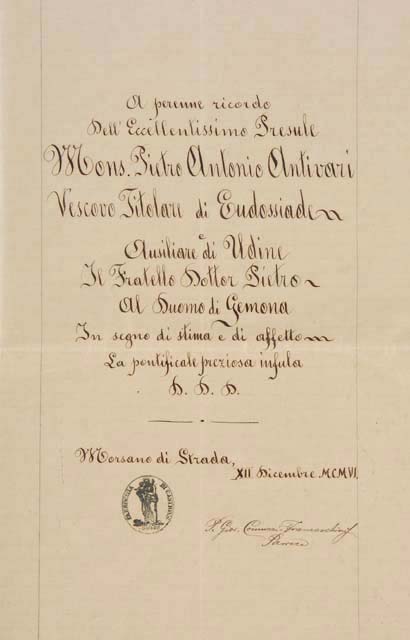 A perenne ricordo
Dell' Eccellentissimo Presule
Mons. Pietro Antonio Antivari
Vescovo Titolare di Eudossiade
Ausiliare di Udine
Il Fratello Dottor Pietro
Al Duomo di Gemona
In segno di stima e di affetto
La pontificale preziosa infula
D. D. D.
Morsano di Strada,
XII Dicembre MCMVI
P. Gio.